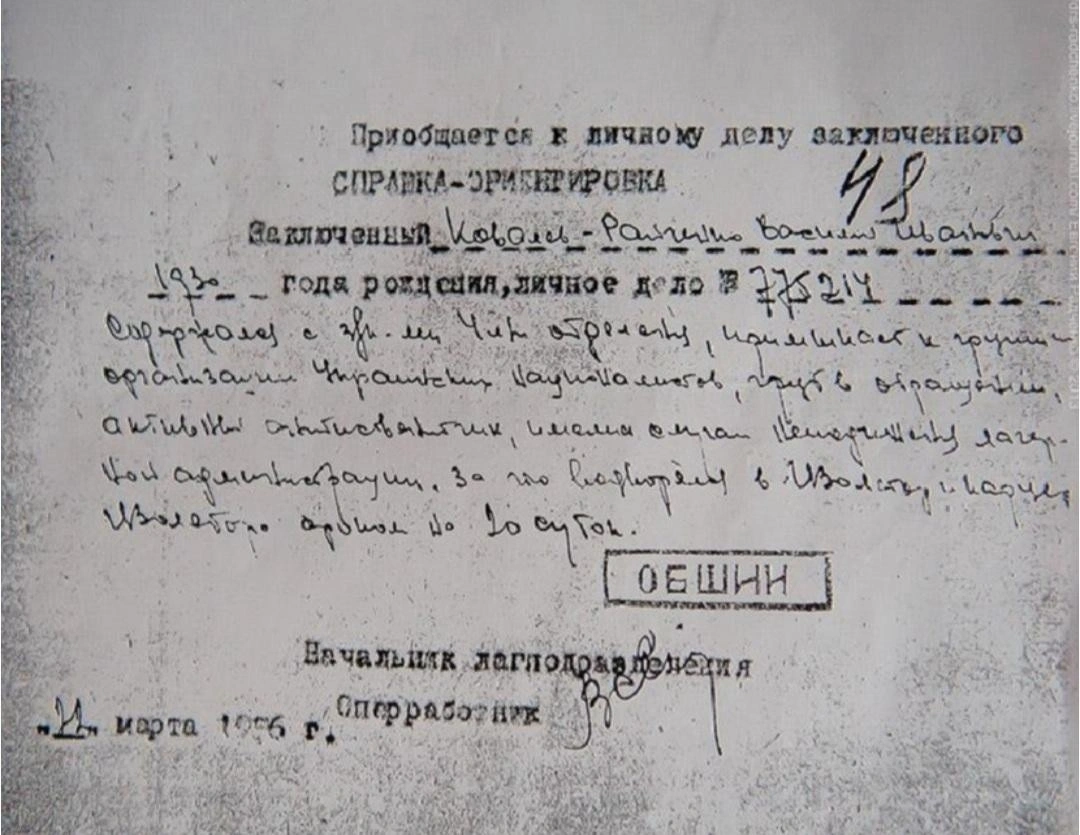 Приобщается к личному делу заключенного
СПРАВКА-ОРИЕНТИРОВКА
48
Заключенный Василий Иванович
1930 года рождения, личное дело № 775214
Содержался с отделения, примыкает к
организации Украинских националистов, груб в обращении,
активный антисоветчик, имели случаи лагер-
ной администрации. За что в Изолятор и
Изолятора сроком на 20 суток.
ОБШИН
Начальник лагподразделения
Оперработник
"21" марта 1956 г.